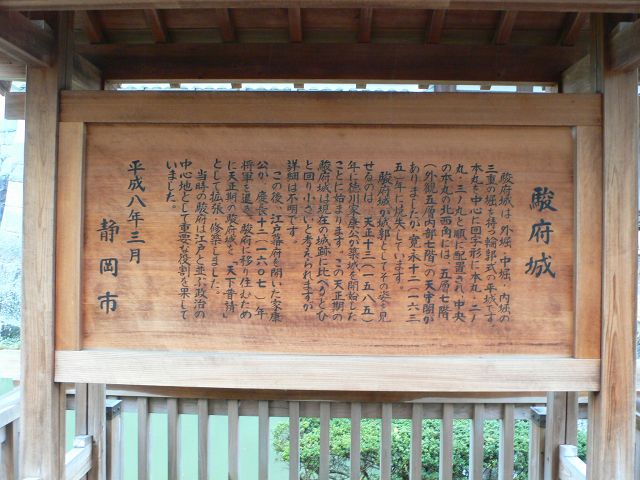 駿府城
駿府城は、外堀・中堀・内堀の
三重の堀を持つ輪郭式の平城です。
本丸を中心に回字形に本丸・二ノ
丸・三ノ丸と順に配置され、中央
の本丸の北西角には、五層七階
（外観五層内部七階）の天守閣が
ありましたが、寛永十二（一六三
五）年に焼失しています。
駿府城が城郭としてその姿を見
せるのは、天正十三（一五八五）
年に徳川家康公が築城を開始した
ことに始まります。この天正期の
駿府城は現在の城跡に比べるとひ
と回り小さいと考えられますが、
詳細は不明です。
この後、江戸幕府を開いた家康
公が、慶長十二（一六〇七）年
将軍を退き、駿府に移り住むため
に天正期の駿府城を「天下普請」
として拡張、修築しました。
当時の駿府は江戸と並ぶ政治の
中心地として重要な役割を果して
いました。
平成八年三月
静岡市